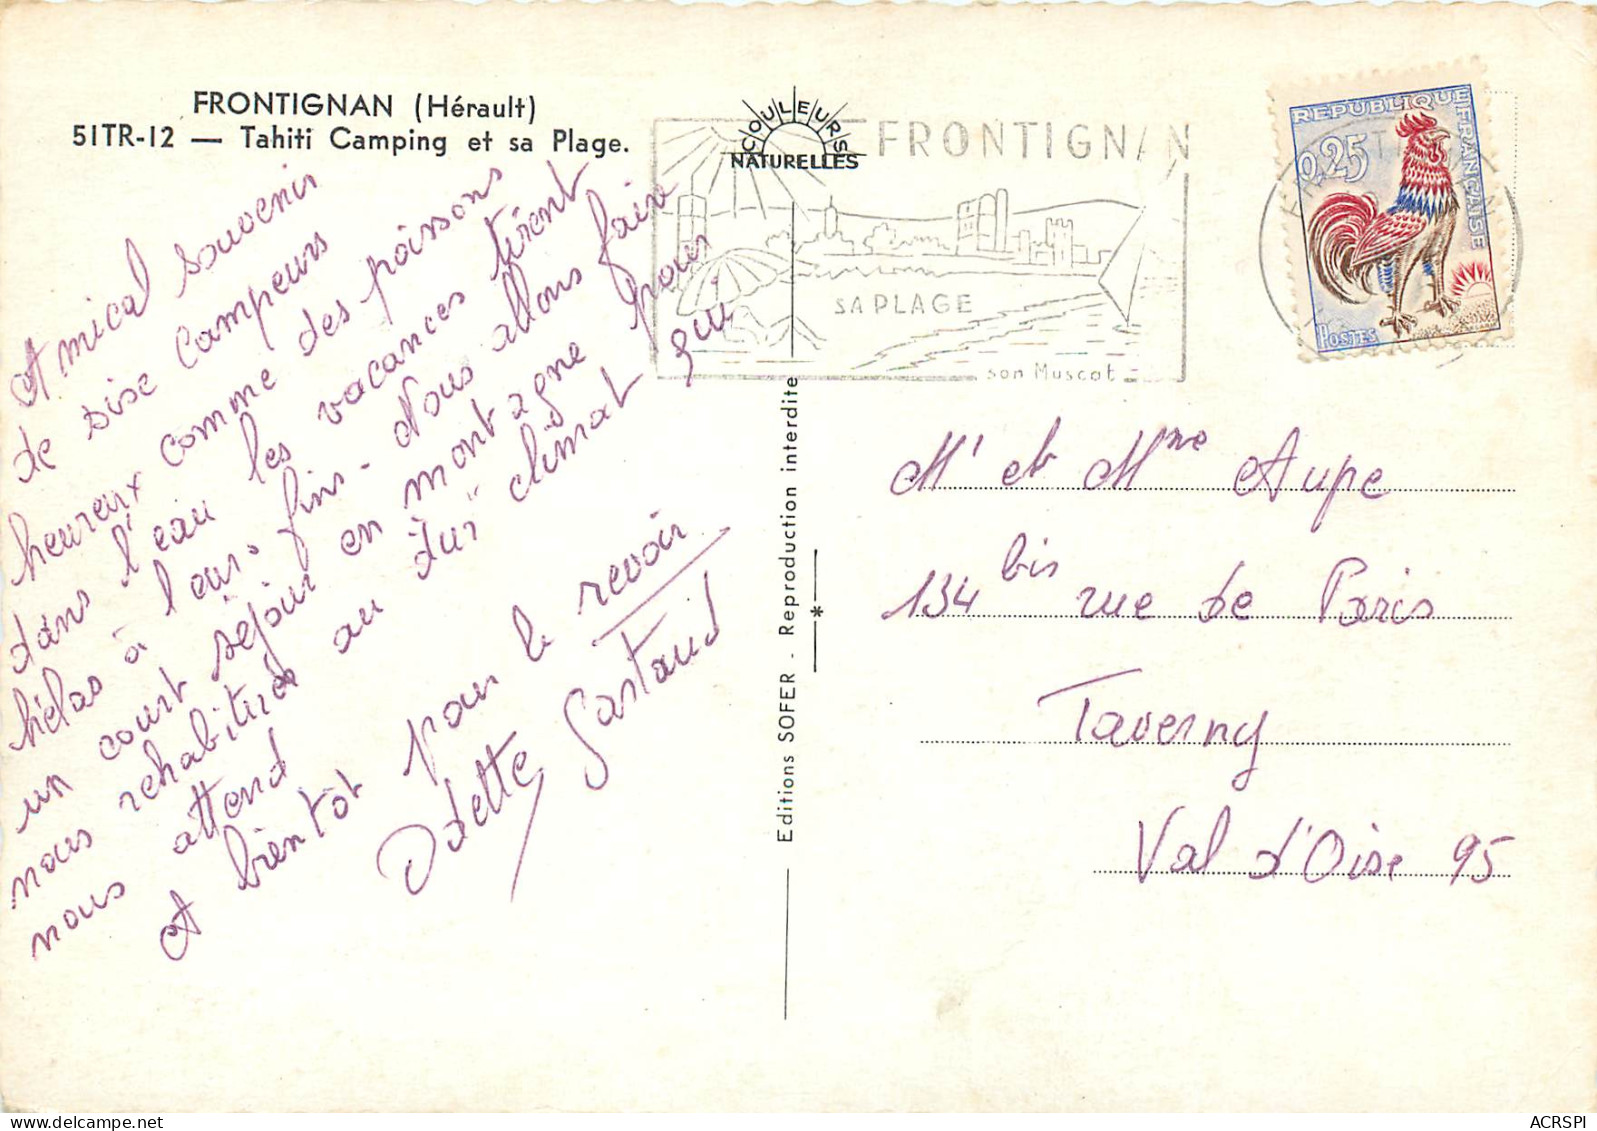 FRONTIGNAN (Hérault)
51TR-12 — Tahiti Camping et sa Plage.
COULEURS
NATURELLES
FRONTIGNAN
SA PLAGE
son Muscat
REPUBLIQUE FRANÇAISE
0,25
POSTES
Amical souvenir
de sise campeurs
heureux comme des poissons
dans l'eau les vacances tirent
hélas à leurs fins - Nous allons faire
un court séjour en montagne pour
nous rehabituer au "dur" climat qui
nous attend
A bientôt pour le revoir
Odette Gastaud
Editions SOFER - Reproduction interdite
Mr et Mme Aupe
134 bis rue de Paris
Taverny
Val d'Oise 95
ACRSPI